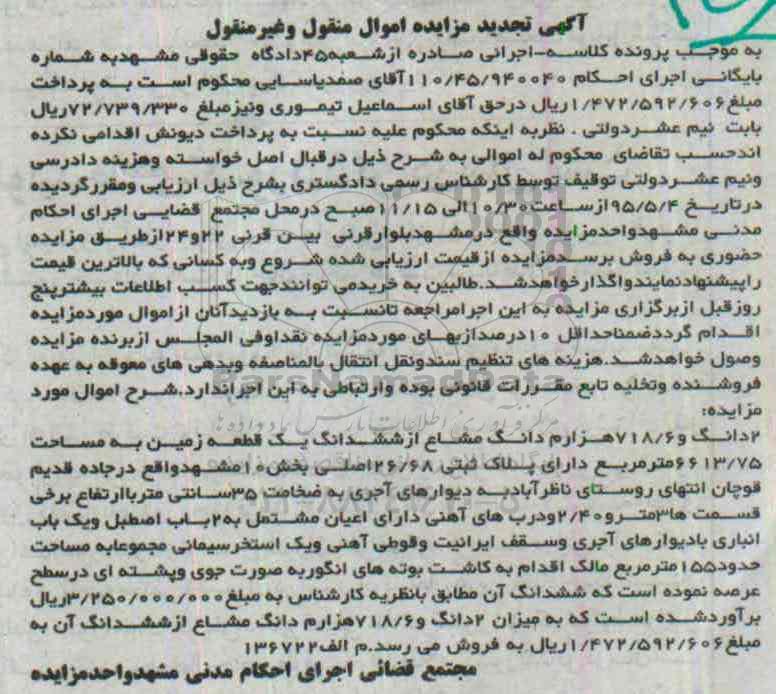 آگهی تجدید مزایده اموال منقول وغیرمنقول
به موجب پرونده کلاسه-اجرائی صادره ازشعبه۴۵دادگاه حقوقی مشهدبه شماره
بایگانی اجرای احکام ۱۱۰/۴۵/۹۴۰۰۴۰آقای صمدیاسایی محکوم است به پرداخت
مبلغ۱/۴۷۲/۵۹۲/۶۰۶ریال درحق آقای اسماعیل تیموری ونیزمبلغ ۷۲/۷۳۹/۳۳۰ریال
بابت نیم عشردولتی . نظربه اینکه محکوم علیه نسبت به پرداخت دیونش اقدامی نکرده
اندحسب تقاضای محکوم له اموالی به شرح ذیل درقبال اصل خواسته وهزینه دادرسی
ونیم عشردولتی توقیف توسط کارشناس رسمی دادگستری بشرح ذیل ارزیابی ومقررگردیده
درتاریخ ۹۵/۵/۴ازساعت۱۰/۳۰الی ۱۱/۱۵صبح درمحل مجتمع قضایی اجرای احکام
مدنی مشهدواحدمزایده واقع درمشهدبلوارقرنی بین قرنی ۲۲و۲۴ازطریق مزایده
حضوری به فروش برسدمزایده ازقیمت ارزیابی شده شروع وبه کسانی که بالاترین قیمت
راپیشنهادنمایندواگذارخواهدشد.طالبین به خریدمی توانندجهت کسب اطلاعات بیشترپنج
روزقبل ازبرگزاری مزایده به این اجرامراجعه تانسبت به بازدیدآنان ازاموال موردمزایده
اقدام گرددضمناحداقل ۱۰درصدازبهای موردمزایده نقداوفی المجلس ازبرنده مزایده
وصول خواهدشد.هزینه های تنظیم سندونقل انتقال بالمناصفه وبدهی های معوقه به عهده
فروشنده وتخلیه تابع مقررات قانونی بوده وارتباطی به این اجراندارد.شرح اموال مورد
مزایده:
۲دانگ و۷۱۸/۶هزارم دانگ مشاع ازششدانگ یک قطعه زمین به مساحت
۶۶۱۳/۷۵مترمربع دارای پلاک ثبتی ۲۶/۶۸اصلی بخش۱۰مشهدواقع درجاده قدیم
قوچان انتهای روستای ناظرآبادبه دیوارهای آجری به ضخامت ۳۵سانتی مترباارتفاع برخی
قسمت ها۳مترو۲/۴۰ودرب های آهنی دارای اعیان مشتمل به۲باب اصطبل ویک باب
انباری بادیوارهای آجری وسقف ایرانیت وقوطی آهنی ویک استخرسیمانی مجموعابه مساحت
حدود۱۵۵مترمربع مالک اقدام به کاشت بوته های انگوربه صورت جوی وپشته ای درسطح
عرصه نموده است که ششدانگ آن مطابق بانظریه کارشناس به مبلغ۳/۲۵۰/۰۰۰/۰۰۰ریال
برآوردشده است که به میزان ۲دانگ و۷۱۸/۶هزارم دانگ مشاع ازششدانگ آن به
مبلغ۱/۴۷۲/۵۹۲/۶۰۶ریال به فروش می رسد.م الف۱۳۶۷۲۲
مجتمع قضائی اجرای احکام مدنی مشهدواحدمزایده
ParsNamadData